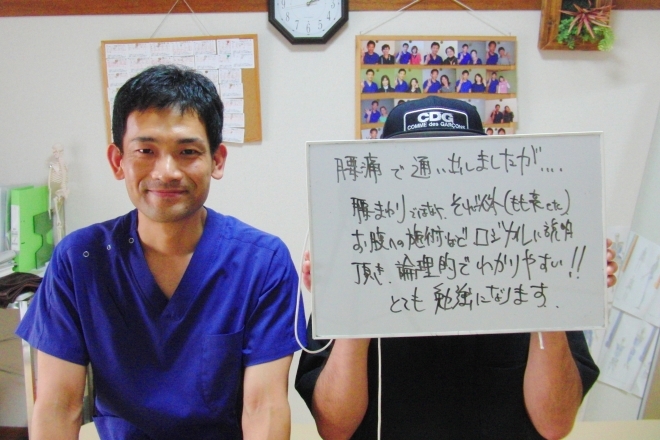 CDG
COMME des GARÇONS
腰痛で通い出しましたが....
腰まわりではなく、それ以外(もも裏とか)
お腹への施術などロジカルに説明
頂き、論理的でわかりやすい!!
とても勉強になります、